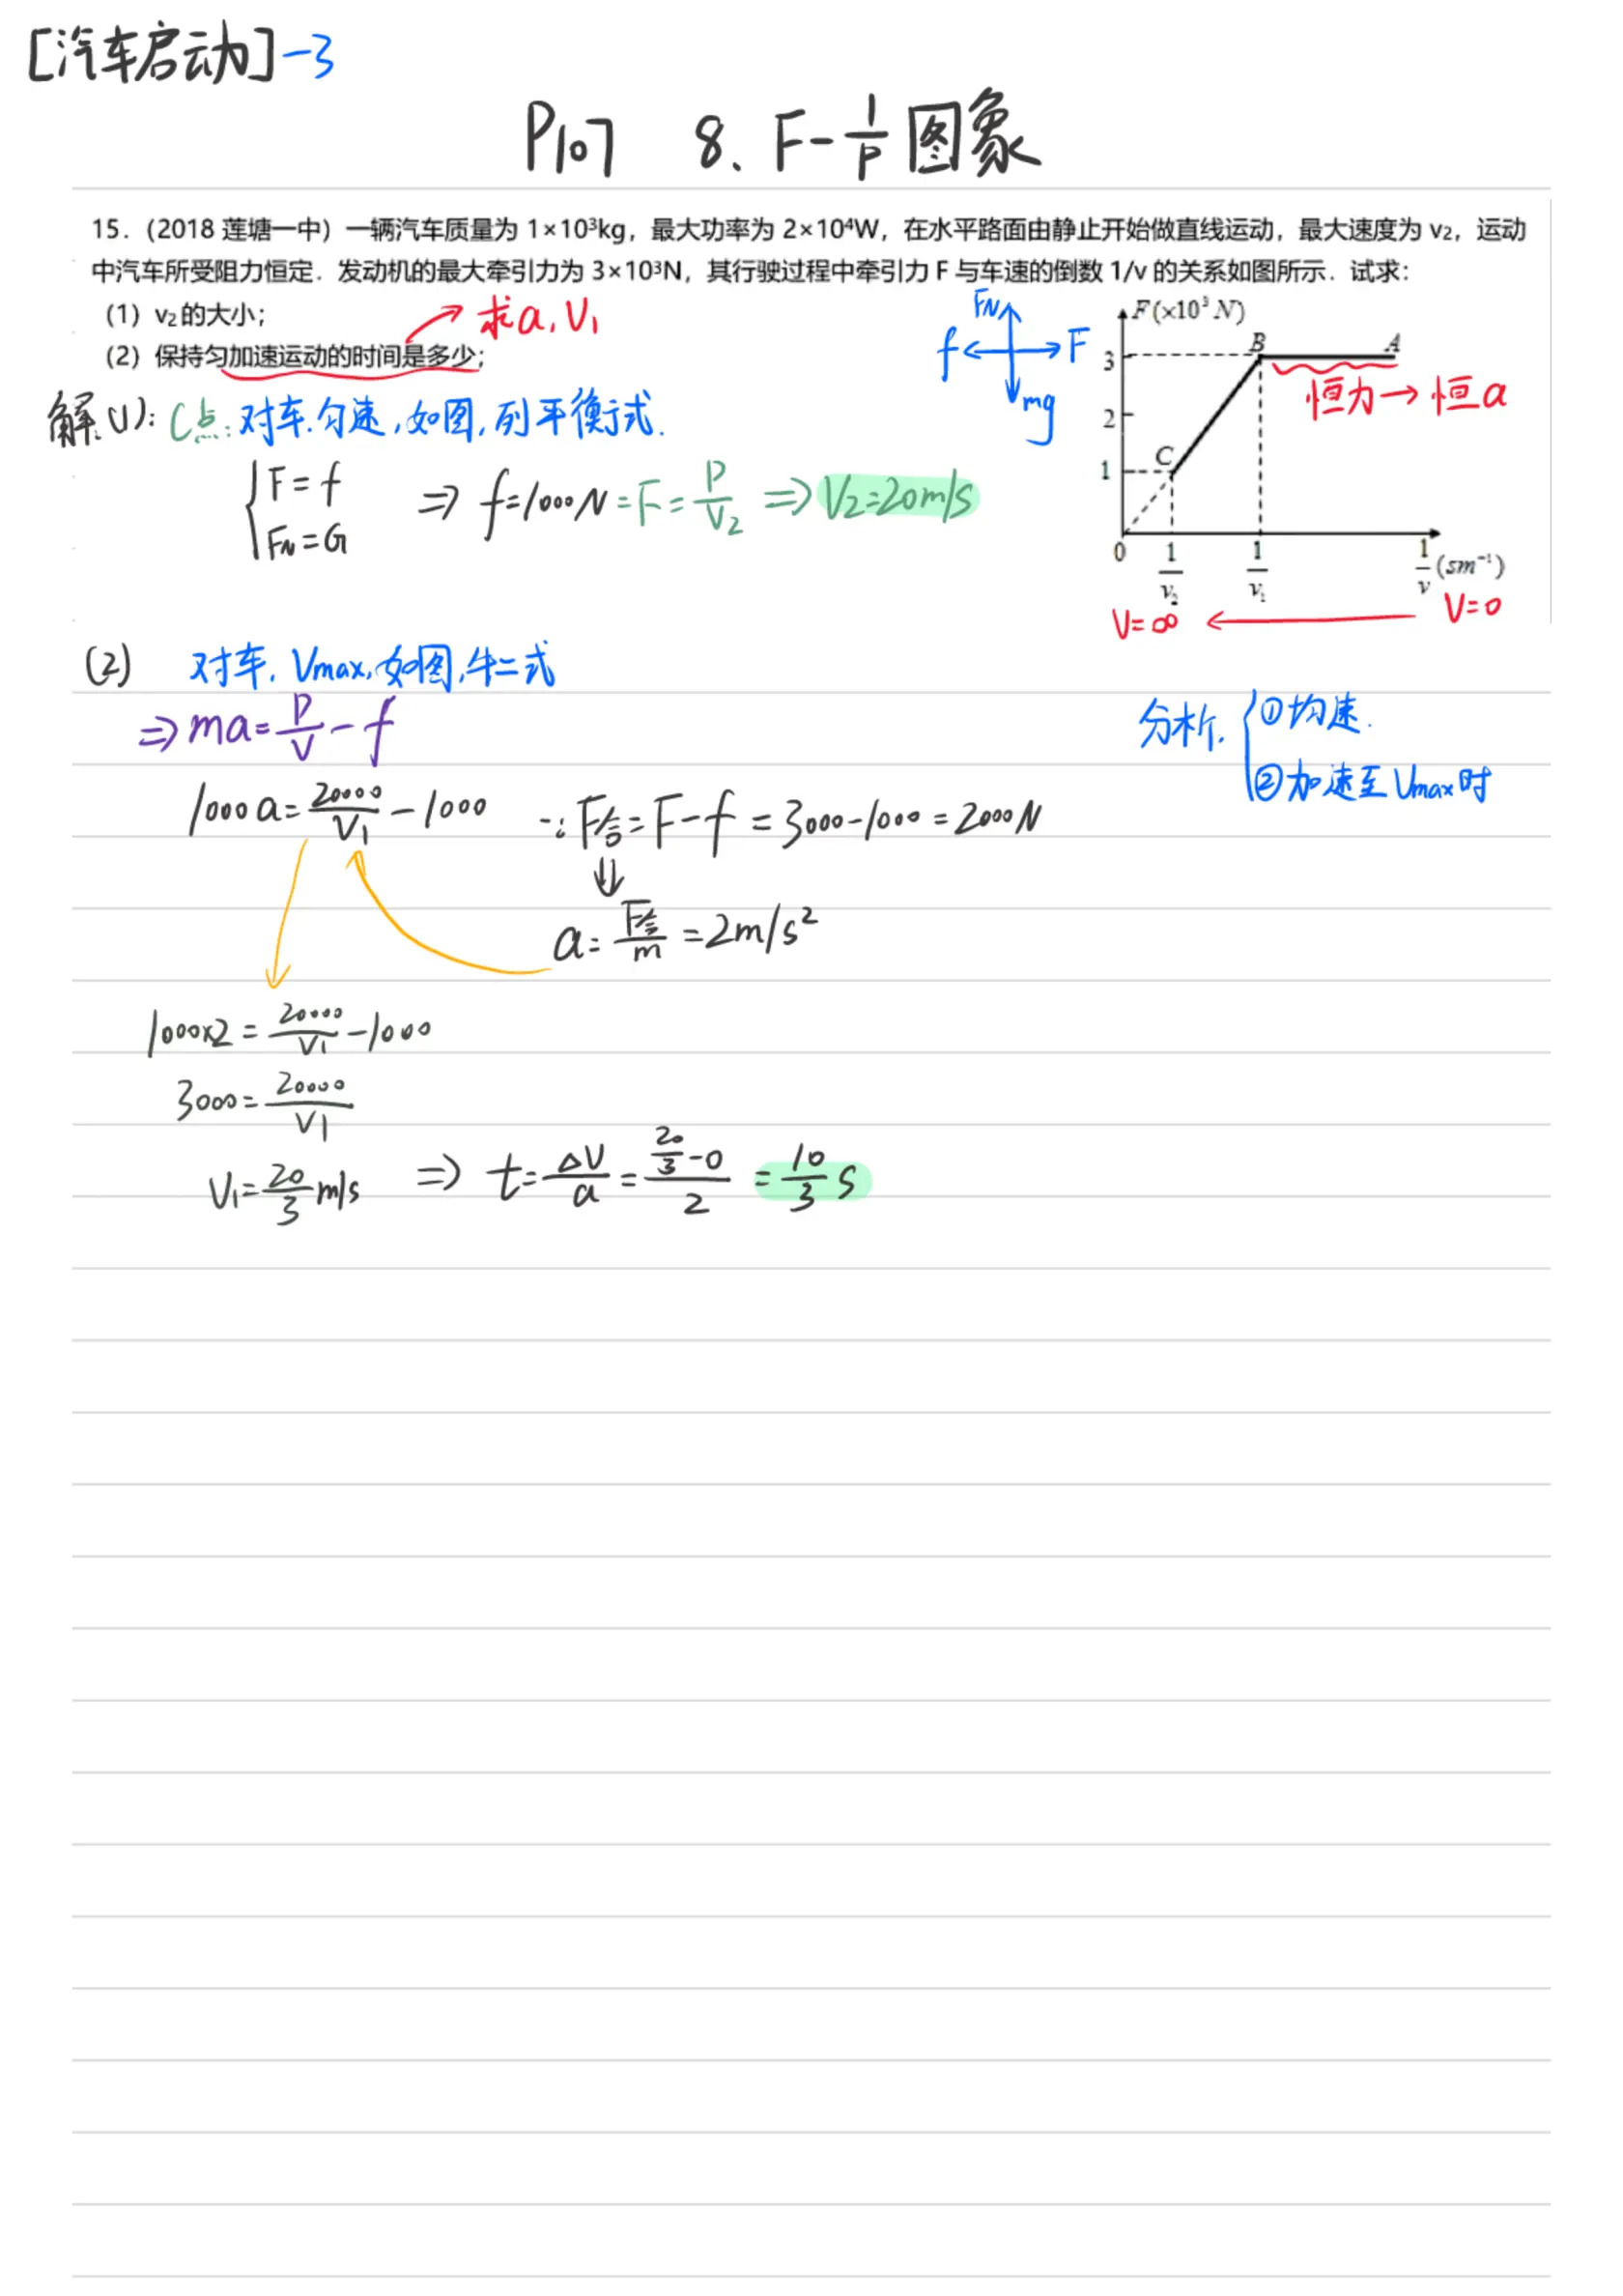 [汽车启动]-3
P107 8. F-1/P 图象
15.（2018 莲塘一中）一辆汽车质量为 1×10³kg，最大功率为 2×10⁴W，在水平路面由静止开始做直线运动，最大速度为 v₂，运动
中汽车所受阻力恒定．发动机的最大牵引力为 3×10³N，其行驶过程中牵引力 F 与车速的倒数 1/v 的关系如图所示．试求：
（1）v₂的大小；
（2）保持匀加速运动的时间是多少；
求a, V₁
FN
f F
mg
F(×10³ N)
3 B A
恒力→恒a
2
1 C
0 1/v₂ 1/v₁ 1/v (sm⁻¹)
V=∞ ← V=0
解(1): C点: 对车.匀速,如图,列平衡式.
F=f
FN=G
⇒ f=1000N=F=P/V₂ ⇒V₂=20m/s
(2) 对车, Vmax,如图,牛二式
⇒ma=P/V-f
分析. ①均速.
②加速至Vmax时
1000a=20000/V₁-1000 ∵F合=F-f=3000-1000=2000N
⇓
a=F合/m=2m/s²
1000×2=20000/V₁-1000
3000=20000/V₁
V₁=20/3 m/s ⇒ t=ΔV/a=(20/3-0)/2=10/3 s